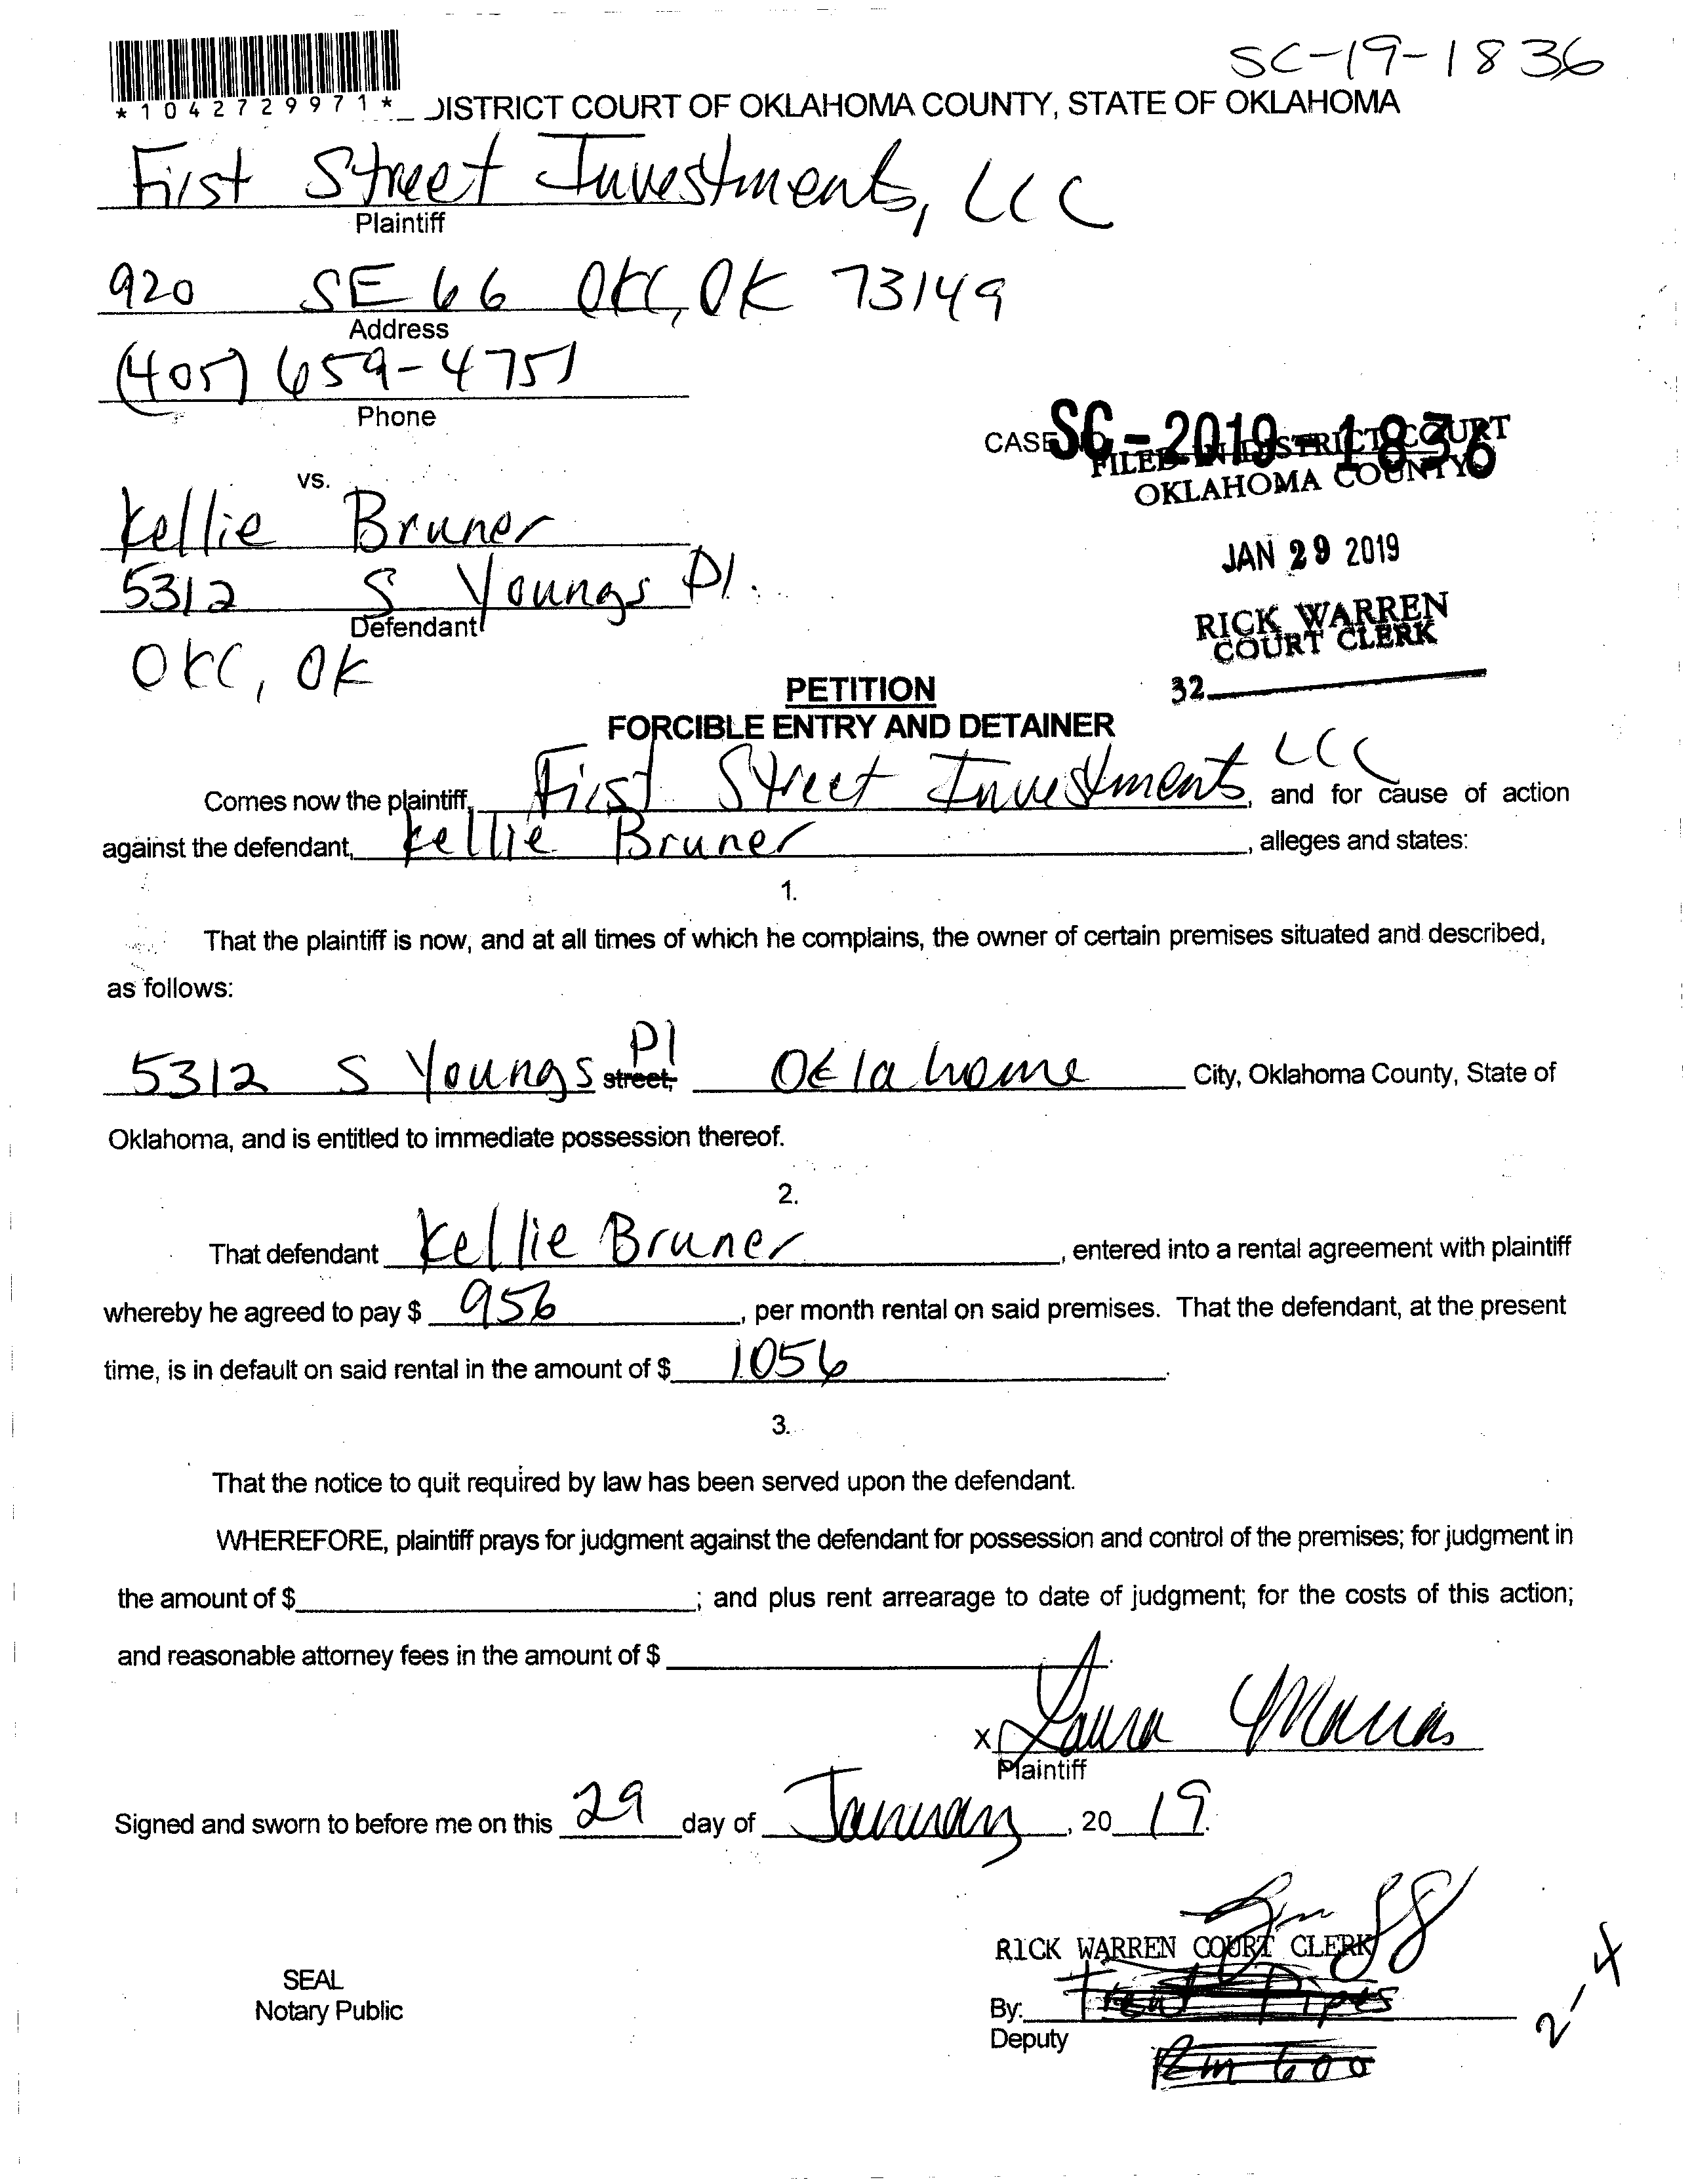 SC-19-1836
*1042729971*
DISTRICT COURT OF OKLAHOMA COUNTY, STATE OF OKLAHOMA
First Street Investments, LLC
Plaintiff
920 SE 66 OKC, OK 73149
Address
(405) 659-4751
Phone
CASE SC-2019-1836
FILED IN DISTRICT COURT
OKLAHOMA COUNTY
vs.
Kellie Bruner
JAN 29 2019
5312 S Youngs Pl.
Defendant
RICK WARREN
COURT CLERK
OKC, OK
32
PETITION
FORCIBLE ENTRY AND DETAINER
Comes now the plaintiff, First Street Investments LLC, and for cause of action
against the defendant, Kellie Bruner, alleges and states:
1.
That the plaintiff is now, and at all times of which he complains, the owner of certain premises situated and described,
as follows:
5312 S Youngs Pl street, Oklahoma City, Oklahoma County, State of
Oklahoma, and is entitled to immediate possession thereof.
2.
That defendant Kellie Bruner, entered into a rental agreement with plaintiff
whereby he agreed to pay $ 956, per month rental on said premises. That the defendant, at the present
time, is in default on said rental in the amount of $ 1056.
3.
That the notice to quit required by law has been served upon the defendant.
WHEREFORE, plaintiff prays for judgment against the defendant for possession and control of the premises; for judgment in
the amount of $ ; and plus rent arrearage to date of judgment; for the costs of this action;
and reasonable attorney fees in the amount of $
x Laura
Plaintiff
Signed and sworn to before me on this 29 day of January, 20 19.
RICK WARREN COURT CLERK
SEAL
Notary Public
By:
Deputy
Rm 600
2-4